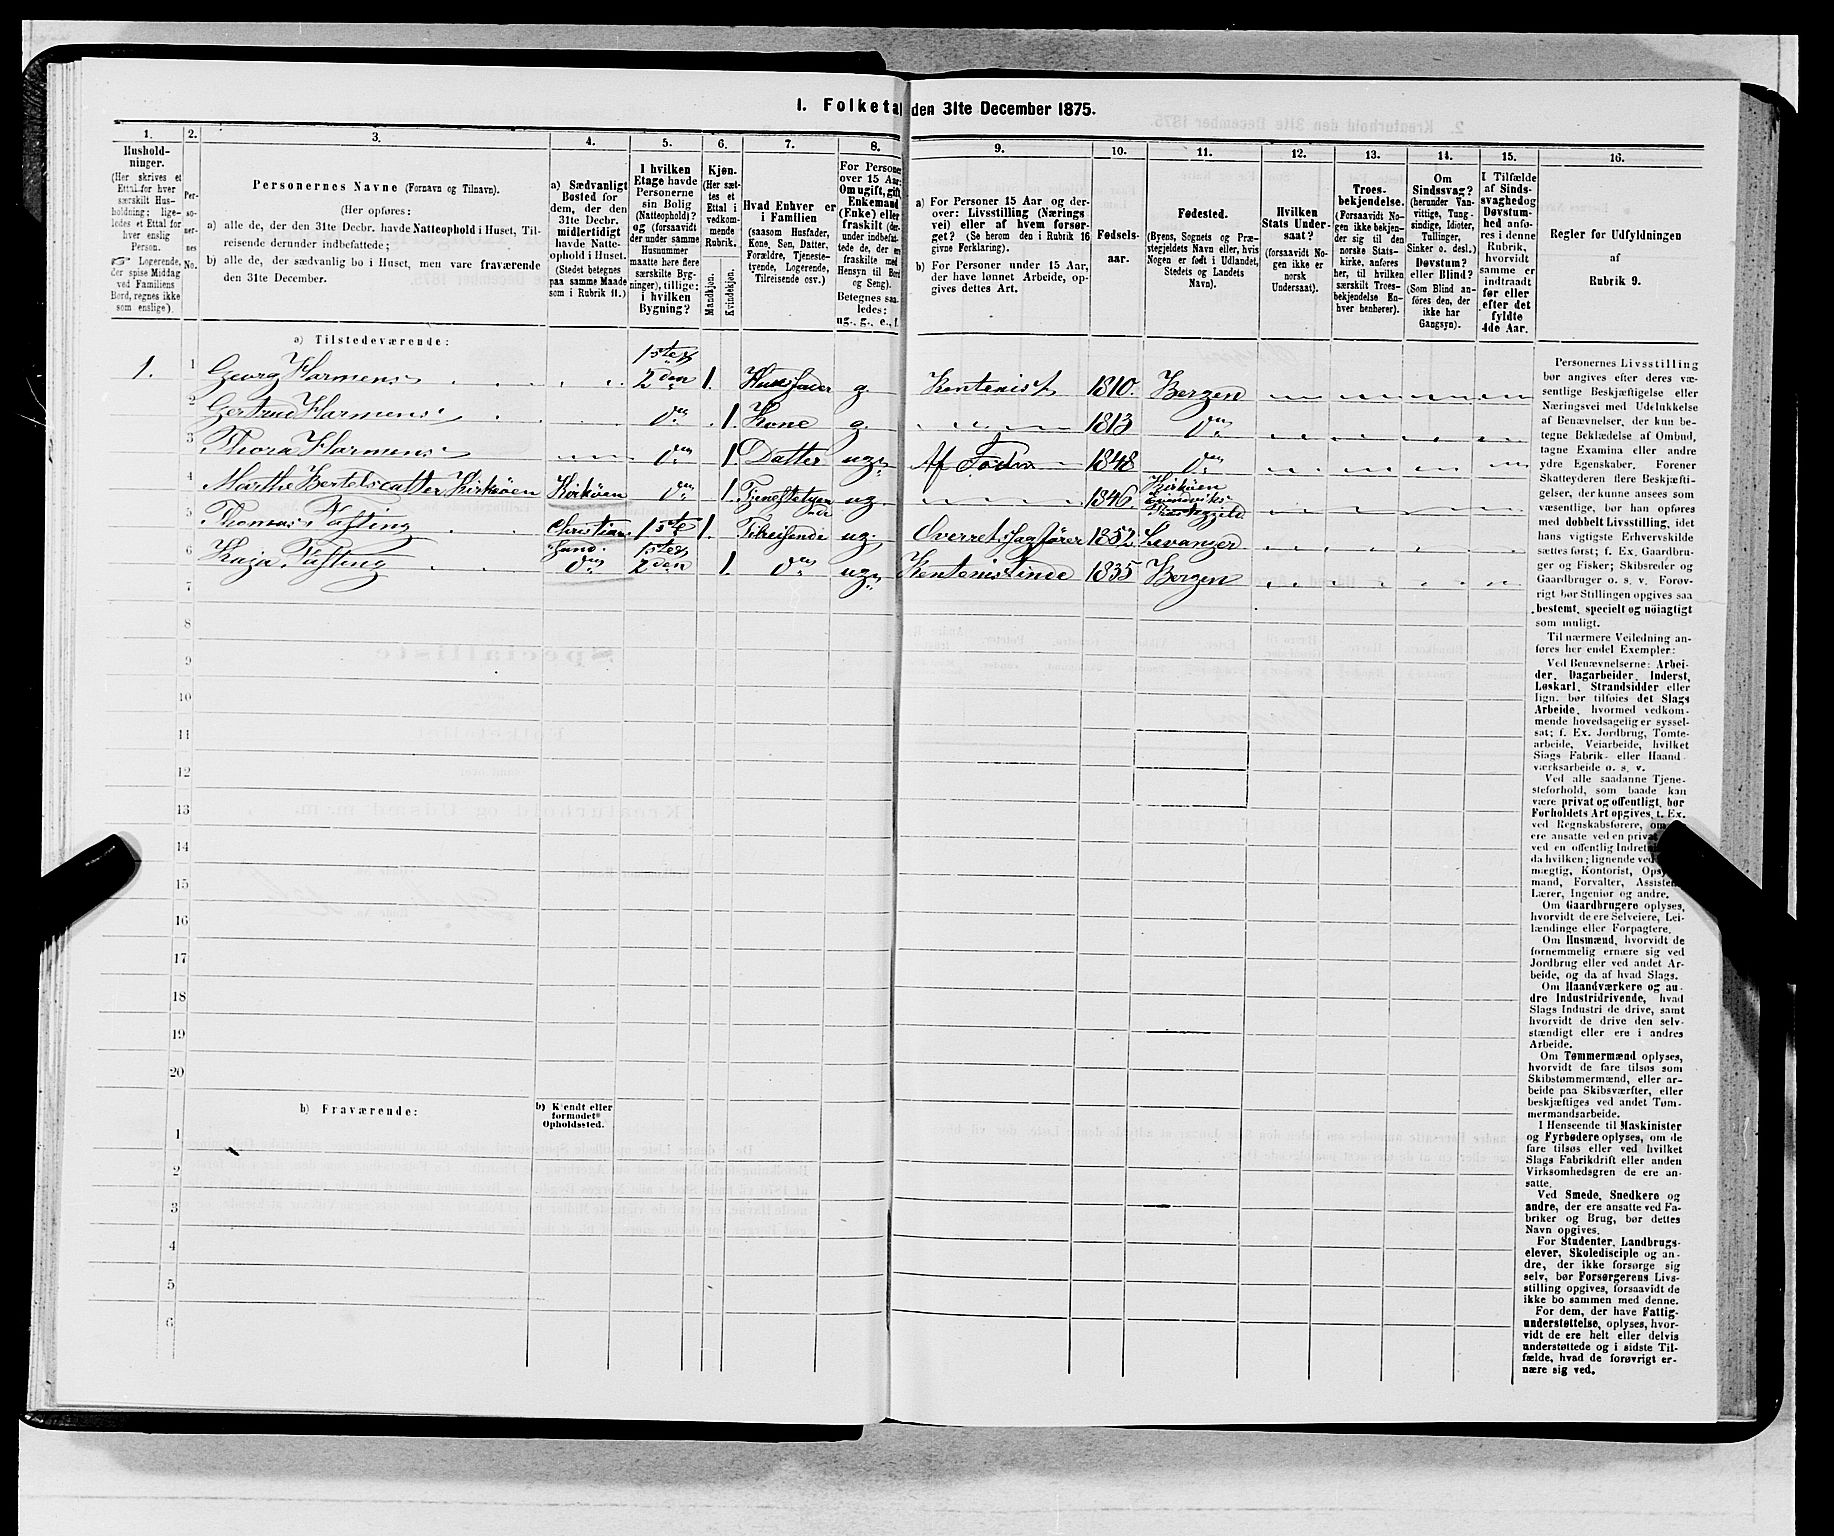 I. Folketal den 31te December 1875.
1.
Hushold-
ninger.
(Her skrives et
Ettal for hver
særskilt Hus-
holdning; lige-
ledes et Ettal for
hver enslig
Person.
Logerende,
der spise Middag
ved Familiens
Bord, regnes ikke
som enslige).
2.
Per-
so-
ner-
nes
No.
3.
Personernes Navne (Fornavn og Tilnavn).
(Her opføres:
a) alle de, der den 31te Decbr. havde Natteophold i Huset, Til-
reisende derunder indbefattede;
b) alle de, der sædvanlig bo i Huset, men vare fraværende
den 31te December.
4.
a) Sædvanligt
Bosted for
dem, der den
31te Decbr.
midlertidigt
havde Natte-
ophold i Huset.
(Stedet betegnes
paa samme Maade
som i Rubrik 11.)
5.
I hvilken
Etage havde
Personerne
sin Bolig
(Natteophold)?
og (forsaavidt
der under samme
Husnummer
maatte høre flere
særskilte Byg-
ninger), tillige:
i hvilken
Bygning?
6.
Kjøn.
(Her sæt-
tes et
Ettal i
vedkom-
mende
Rubrik.
Mandkjøn.
Kvindekjøn.
7.
Hvad Enhver er
i Familien
(saasom Husfader,
Kone, Søn, Datter,
Forældre, Tjeneste-
tyende, Logerende,
Tilreisende osv.)
8.
For Personer
over 15 Aar:
Om ugift, gift,
Enkemand
(Enke) eller
fraskilt (der-
under indbefat-
tede de, der ere
fraskilte med
Hensyn til Bord
og Seng).
Betegnes saa-
ledes:
ug., g., e., f.
9.
a) For Personer 15 Aar og der-
over: Livsstilling (Nærings-
vei) eller af hvem forsør-
get? (Se herom den i Rubrik 16
givne Forklaring).
b) For Personer under 15 Aar,
der have lønnet Arbeide, op-
gives dettes Art.
10.
Fødsels-
aar.
11.
Fødested.
(Byens, Sognets og Præ-
stegjeldets Navn eller, hvis
Nogen er født i Udlandet,
Stedets og Landets
Navn).
12.
Hvilken
Stats Under-
saat?
(forsaavidt No-
gen ikke er
norsk
Undersaat).
13.
Troes-
bekjendelse.
(Forsaavidt No-
gen ikke bekjen-
der sig til den
norske Stats-
kirke, anføres
her, til hvilken
særskilt Troes-
bekjendelse En-
hver henhører).
14.
Om
Sindssvag?
(herunder Van-
vittige, Tung-
sindige, Idioter,
Tullinger,
Sinker o. desl.)
Døvstum?
eller Blind?
(Som Blind an-
føres den, der
ikke har
Gangsyn).
15.
I Tilfælde
af Sinds-
svaghed og
Døvstum-
hed anfø-
res i denne
Rubrik,
hvorvidt
samme er
indtraadt
før eller
efter det
fyldte
4de Aar.
16.
Regler for Udfyldningen
af
Rubrik 9.
a) Tilstedeværende:
1. 1 Georg Harmens 1ste & 2den 1. Husfader g. Rentenist 1810. Bergen
2 Gertrud Harmens do 1. Kone g. 1813 do
3 Thora Harmens do 1. Datter ug. Af Fader 1848 do
4 Marthe Bertelsdatter Kirkøen Kirkøen do 1. Tjenestetyende ug. 1846. Kirkøen
Evindviks
Præstegjeld
5 Thomas Fasting Christian- 1ste 1. Tilreisende ug. Overrets Sagfører 1852 Levanger
6 Kaja Fasting sand. do 1ste & 2den 1. do ug. Rentenistinde 1835 Bergen
7
8
9
10
11
12
13
14
15
16
17
18
19
20
b) Fraværende:
b) Kjendt eller
formodet
Opholdssted.
1
2
3
4
5
6
Personernes Livsstilling
bør angives efter deres væ-
sentlige Beskjæftigelse eller
Næringsvei med Udelukkelse
af Benævnelser, der kun be-
tegne Beklædelse af Ombud,
tagne Examina eller andre
ydre Egenskaber. Forener
Skatteyderen flere Beskjæfti-
gelser, der kunne ansees som
væsentlige, bør han opføres
med dobbelt Livsstilling, idet
hans vigtigste Erhvervskilde
sættes først; f. Ex. Gaardbru-
ger og Fisker; Skibsreder og
Gaardbruger o. s. v. Forøv-
rigt bør Stillingen opgives saa
bestemt, specielt og nöiagtigt
som muligt.
Til nærmere Veiledning an-
føres her endel Exempler:
Ved Benævnelserne: Arbei-
der, Dagarbeider, Inderst,
Løskarl, Strandsidder eller
lign. bør tilføies det Slags
Arbeide, hvormed vedkom-
mende hovedsagelig er syssel-
sat; f. Ex. Jordbrug, Tomte-
arbeide, Veiarbeide, hvilket
Slags Fabrik- eller Haand
værksarbeide o. s. v.
Ved alle saadanne Tjene-
steforhold, som baade kan
være privat og offentligt, bør
Forholdets Art opgives, t. Ex.
ved Regnskabsførere, om
ere ansatte ved en privat
ved en offentlig Indretn
da hvilken; lignende ved
mægtig, Kontorist, Opsy
mand, Forvalter, Assiste
Lærer, Ingeniør og andre.
Om Gaardbrugere oplyses,
hvorvidt de ere Selveiere, Lei-
lændinge eller Forpagtere.
Om Husmænd, hvorvidt de
fornemmelig ernære sig ved
Jordbrug eller ved andet Ar-
beide, og da af hvad Slags.
Om Haandværkere og an-
dre Industridrivende, hvad
Slags Industri de drive, samt
hvorvidt de drive den selv-
stændigt eller ere i andres
Arbeide.
Om Tømmermænd oplyses,
hvorvidt de fare tilsøs som
Skibstømmermænd, eller ar-
beide paa Skibsværfter, eller
beskjæftiges ved andet Tøm-
mermandsarbeide.
I Henseende til Maskinister
og Fyrbødere oplyses, om de
fare tilsøs eller ved hvilket
Slags Fabrikdrift eller anden
Virksomhedsgren de ere an-
satte.
Ved Smede, Snedkere og
andre, der ere ansatte ved Fa-
briker og Brug, bør dettes
Navn opgives.
For Studenter, Landbrugs-
elever, Skoledisciple og an-
dre, der ikke forsørge sig
selv, bør Forsørgerens Livs-
stilling opgives, forsaavidt de
ikke bo sammen med denne.
For dem, der have Fattig-
understøttelse, oplyses, hvor-
vidt de ere helt eller delvis
understøttede og i sidste Til-
fælde, hvad de forøvrigt er-
nære sig ved.